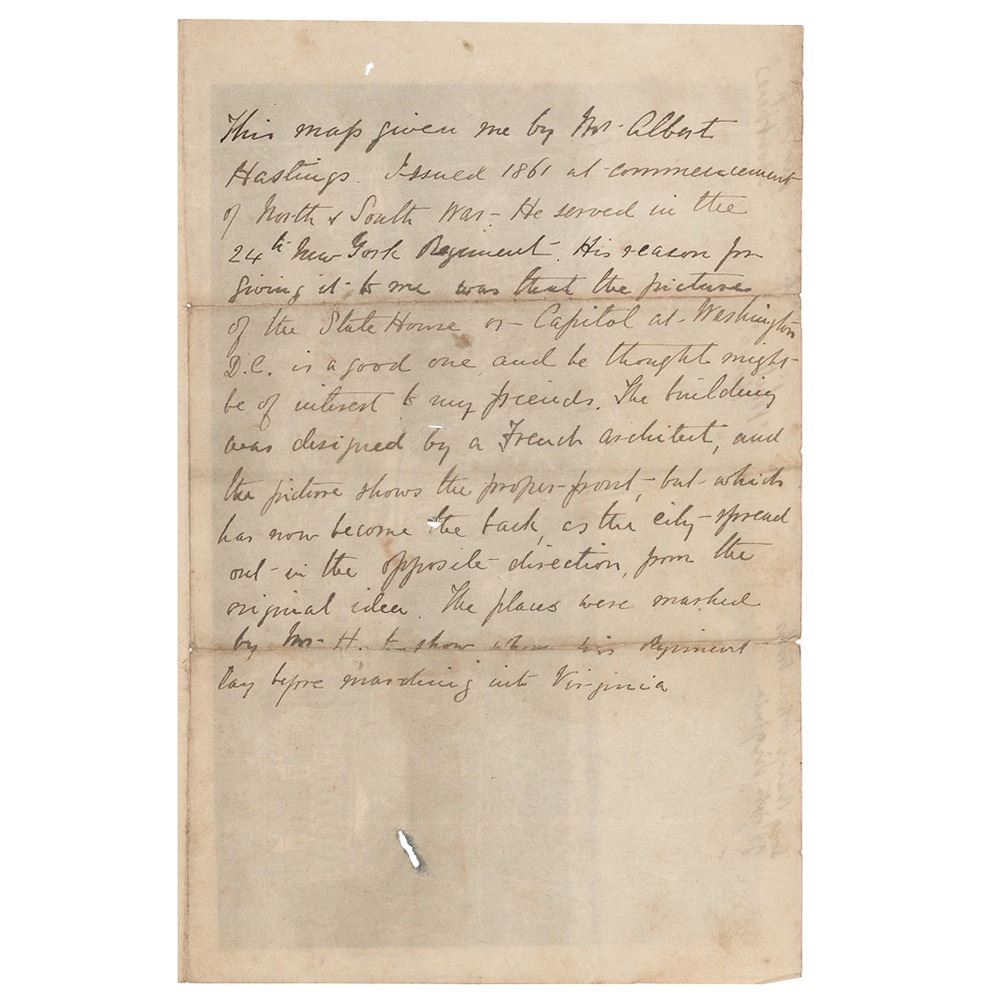 This map given me by Mr. Albert
Hastings. Issued 1861 at commencement
of North & South War - He served in the
24th New York Regiment. His reason for
giving it to me was that the picture
of the State House or Capitol at Washington
D.C. is a good one and he thought might
be of interest to my friends. The building
was designed by a French architect, and
the picture shows the proper front, but which
has now become the back, as the city spread
out in the opposite direction, from the
original idea. The places were marked
by Mr. H. to show where his Regiment
lay before marching into Virginia